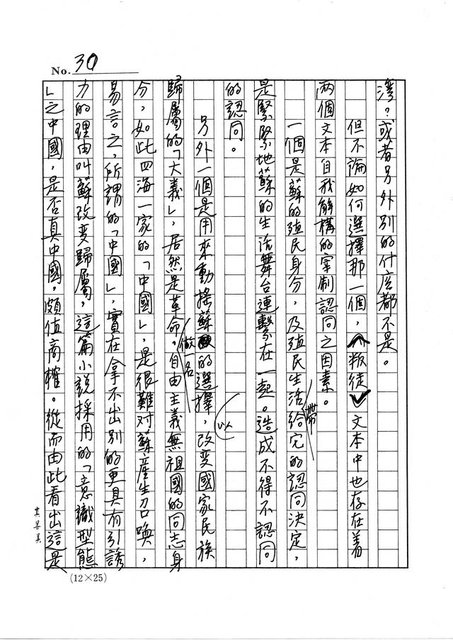 No. 30
灣？或者另外別的什麼都不是。
但不論如何選擇那一個，〈叛徒〉文本中也存在着
兩個文本自我解構的牽制認同之因素。
一個是蘇的殖民身分，及殖民生活帶給它的認同決定，
是緊緊地蘇的生活舞台連繫在一起。造成不得不認同
的認同。
另外一個是用來動搖蘇的選擇，以改變國家民族
歸屬的「大義」，居然是革命。自由主義無祖國的同志身
分，如此四海一家的「中國」，是很難对蘇產生召喚，
易言之，所謂的「中國」，實在拿不出別的更具有引誘
力的理由叫蘇改變歸屬，這篇小說採用的「意識型態
」之中國，是否真中國，頗值商榷。從而由此看出這是
做一名
(12×25)